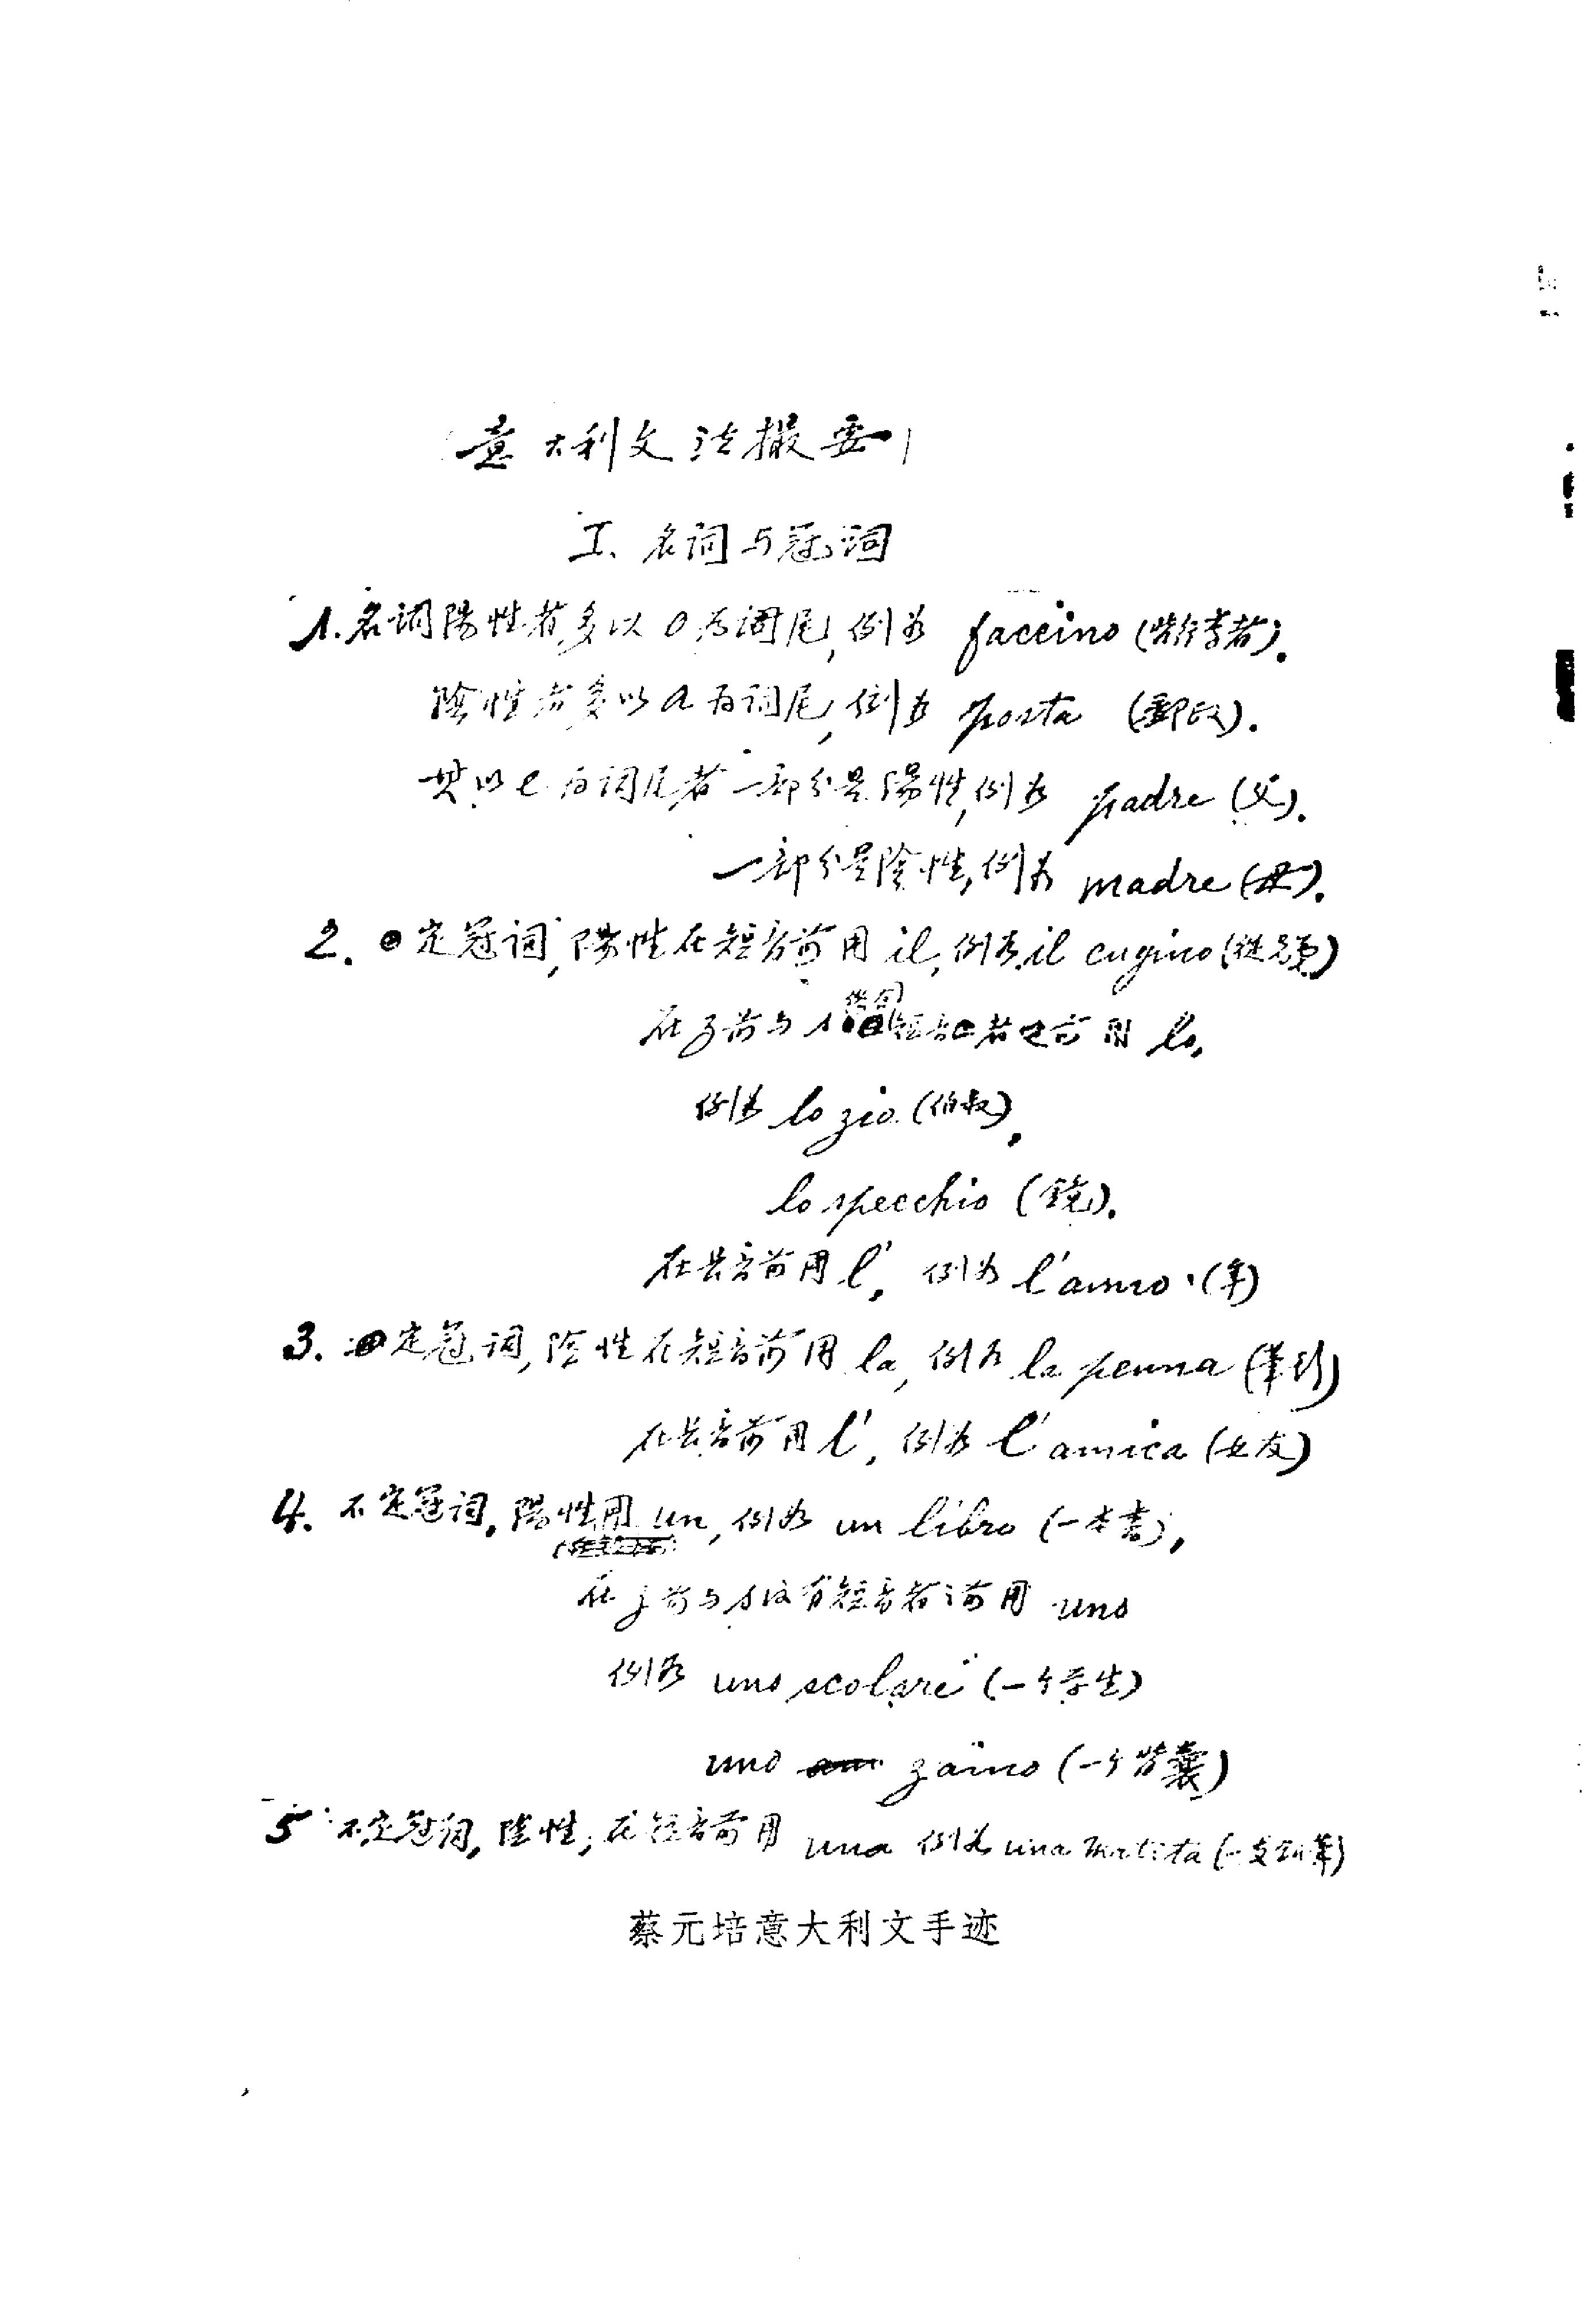 意大利文法撮要
I、名词与冠词
1.名词陽性者多以o为词尾,例为 faccino (背行李者).
陰性者多以a为词尾,例为 posta (郵政).
其以e为词尾者一部分是陽性,例为 padre (父).
一部分是陰性,例为 madre (母).
2. 定冠词,陽性在短音前用 il,例为 il cugino (從兄弟)
在z前与s 短音者之前用 lo,
例为 lo zio (伯叔).
lo specchio (镜).
在长音前用 l', 例为 l'anno (年)
3. 定冠词,陰性在短音前用 la,例为 la penna (筆)
在长音前用 l', 例为 l'amica (女友)
4. 不定冠词,陽性用 un,例为 un libro (一本书),
在z前与s没有短音者前用 uno
例为 uno scolare (一个学生)
uno zaino (一个背囊)
5 不定冠词,陰性,在短音前用 una 例为 una matita (一支铅筆)
蔡元培意大利文手迹